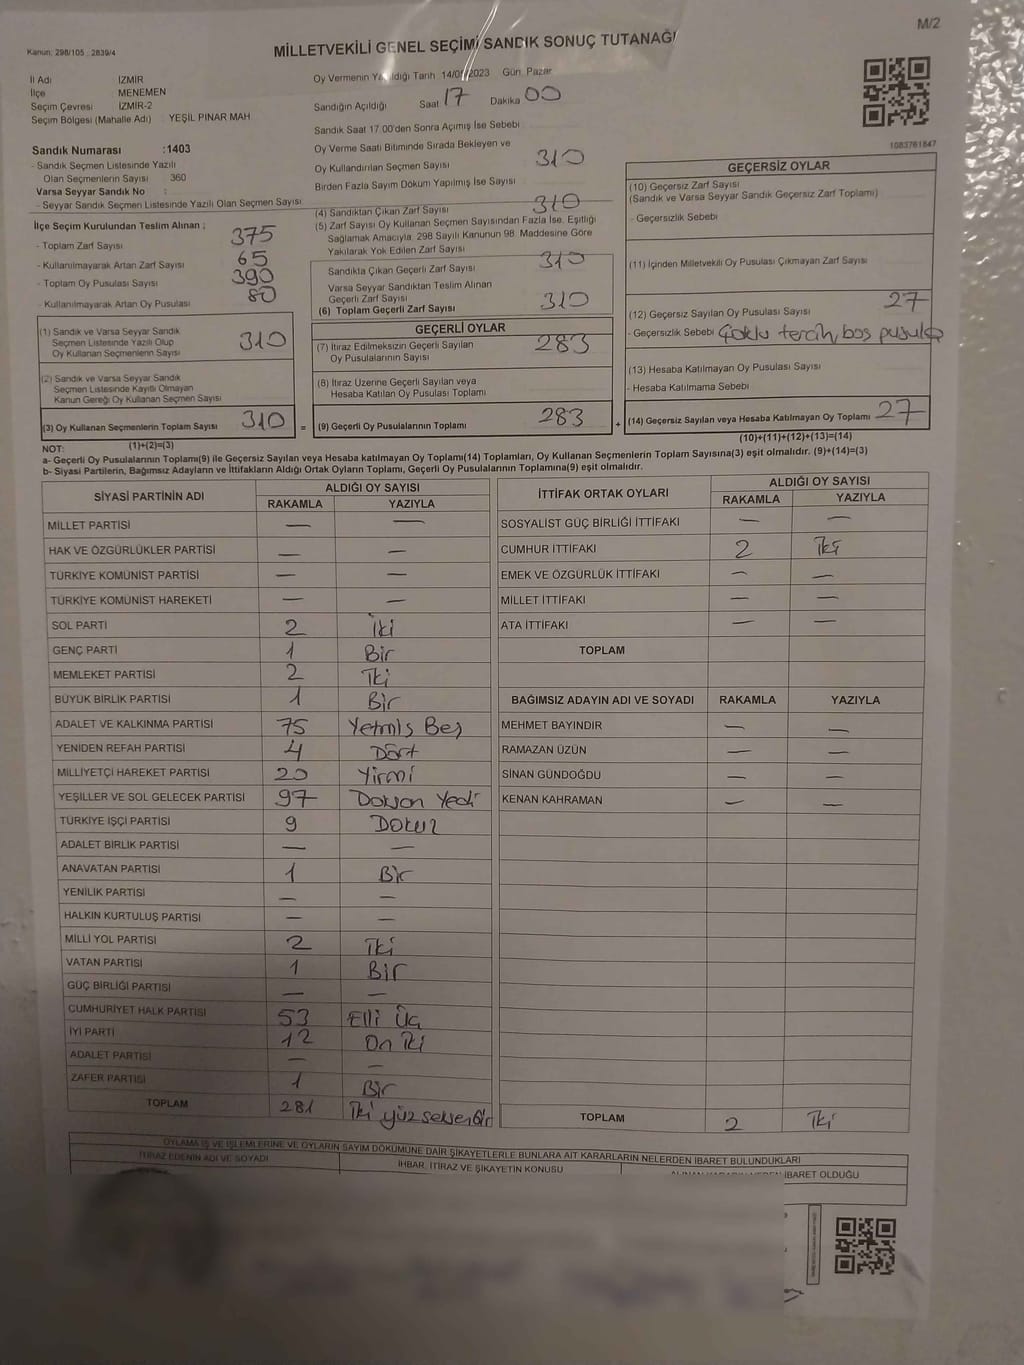 M/2
Kanun: 298/105 2839/4
MİLLETVEKİLİ GENEL SEÇİMİ SANDIK SONUÇ TUTANAĞI
İl Adı İZMİR
İlçe MENEMEN
Seçim Çevresi İZMİR-2
Seçim Bölgesi (Mahalle Adı) YEŞİL PINAR MAH.
Sandık Numarası :1403
- Sandık Seçmen Listesinde Yazılı
Olan Seçmenlerin Sayısı 360
Varsa Seyyar Sandık No :
- Seyyar Sandık Seçmen Listesinde Yazılı Olan Seçmen Sayısı
İlçe Seçim Kurulundan Teslim Alınan ;
- Toplam Zarf Sayısı 375
- Kullanılmayarak Artan Zarf Sayısı 65
- Toplam Oy Pusulası Sayısı 390
- Kullanılmayarak Artan Oy Pusulası 80
(1) Sandık ve Varsa Seyyar Sandık
Seçmen Listesinde Yazılı Olup
Oy Kullanan Seçmenlerin Sayısı 310
(2) Sandık ve Varsa Seyyar Sandık
Seçmen Listesinde Kayıtlı Olmayan
Kanun Gereği Oy Kullanan Seçmen Sayısı
(3) Oy Kullanan Seçmenlerin Toplam Sayısı 310 =
(1)+(2)=(3)
Oy Vermenin Yapıldığı Tarih 14/05/2023 Gün: Pazar
Sandığın Açıldığı Saat 17 Dakika 00
Sandık Saat 17.00'den Sonra Açımış İse Sebebi
Oy Verme Saati Bitiminde Sırada Bekleyen ve
Oy Kullandırılan Seçmen Sayısı 310
Birden Fazla Sayım Döküm Yapılmış İse Sayısı
(4) Sandıktan Çıkan Zarf Sayısı 310
(5) Zarf Sayısı Oy Kullanan Seçmen Sayısından Fazla İse, Eşitliği
Sağlamak Amacıyla, 298 Sayılı Kanunun 98. Maddesine Göre
Yakılarak Yok Edilen Zarf Sayısı
Sandıkta Çıkan Geçerli Zarf Sayısı 310
Varsa Seyyar Sandıktan Teslim Alınan
Geçerli Zarf Sayısı
(6) Toplam Geçerli Zarf Sayısı 310
GEÇERLİ OYLAR
(7) İtiraz Edilmeksizin Geçerli Sayılan
Oy Pusulalarının Sayısı 283
(8) İtiraz Üzerine Geçerli Sayılan veya
Hesaba Katılan Oy Pusulası Toplamı
(9) Geçerli Oy Pusulalarının Toplamı 283 +
1083761847
GEÇERSİZ OYLAR
(10) Geçersiz Zarf Sayısı
(Sandık ve Varsa Seyyar Sandık Geçersiz Zarf Toplamı)
- Geçersizlik Sebebi
(11) İçinden Milletvekili Oy Pusulası Çıkmayan Zarf Sayısı
(12) Geçersiz Sayılan Oy Pusulası Sayısı 27
- Geçersizlik Sebebi Çoklu tercih, boş pusula
(13) Hesaba Katılmayan Oy Pusulası Sayısı
- Hesaba Katılmama Sebebi
(14) Geçersiz Sayılan veya Hesaba Katılmayan Oy Toplamı 27
(10)+(11)+(12)+(13)=(14)
NOT:
a- Geçerli Oy Pusulalarının Toplamı(9) ile Geçersiz Sayılan veya Hesaba katılmayan Oy Toplamı(14) Toplamları, Oy Kullanan Seçmenlerin Toplam Sayısına(3) eşit olmalıdır. (9)+(14)=(3)
b- Siyasi Partilerin, Bağımsız Adayların ve İttifakların Aldığı Ortak Oyların Toplamı, Geçerli Oy Pusulalarının Toplamına(9) eşit olmalıdır.
SİYASİ PARTİNİN ADI ALDIĞI OY SAYISI
RAKAMLA YAZIYLA
MİLLET PARTİSİ — —
HAK VE ÖZGÜRLÜKLER PARTİSİ — —
TÜRKİYE KOMÜNİST PARTİSİ — —
TÜRKİYE KOMÜNİST HAREKETİ — —
SOL PARTİ 2 İki
GENÇ PARTİ 1 Bir
MEMLEKET PARTİSİ 2 İki
BÜYÜK BİRLİK PARTİSİ 1 Bir
ADALET VE KALKINMA PARTİSİ 75 Yetmiş Beş
YENİDEN REFAH PARTİSİ 4 Dört
MİLLİYETÇİ HAREKET PARTİSİ 20 Yirmi
YEŞİLLER VE SOL GELECEK PARTİSİ 97 Doksan Yedi
TÜRKİYE İŞÇİ PARTİSİ 9 Dokuz
ADALET BİRLİK PARTİSİ — —
ANAVATAN PARTİSİ 1 Bir
YENİLİK PARTİSİ — —
HALKIN KURTULUŞ PARTİSİ — —
MİLLİ YOL PARTİSİ 2 İki
VATAN PARTİSİ 1 Bir
GÜÇ BİRLİĞİ PARTİSİ — —
CUMHURİYET HALK PARTİSİ 53 Elli Üç
İYİ PARTİ 12 On İki
ADALET PARTİSİ — —
ZAFER PARTİSİ 1 Bir
TOPLAM 281 İki yüz seksen Bir
İTTİFAK ORTAK OYLARI ALDIĞI OY SAYISI
RAKAMLA YAZIYLA
SOSYALİST GÜÇ BİRLİĞİ İTTİFAKI — —
CUMHUR İTTİFAKI 2 İki
EMEK VE ÖZGÜRLÜK İTTİFAKI — —
MİLLET İTTİFAKI — —
ATA İTTİFAKI — —
TOPLAM
BAĞIMSIZ ADAYIN ADI VE SOYADI RAKAMLA YAZIYLA
MEHMET BAYINDIR — —
RAMAZAN ÜZÜN — —
SİNAN GÜNDOĞDU — —
KENAN KAHRAMAN — —
TOPLAM 2 İki
OYLAMA İŞ VE İŞLEMLERİNE VE OYLARIN SAYIM DÖKÜMÜNE DAİR ŞİKAYETLERLE BUNLARA AİT KARARLARIN NELERDEN İBARET BULUNDUKLARI
İTİRAZ EDENİN ADI VE SOYADI İHBAR, İTİRAZ VE ŞİKAYETİN KONUSU İBARET OLDUĞU